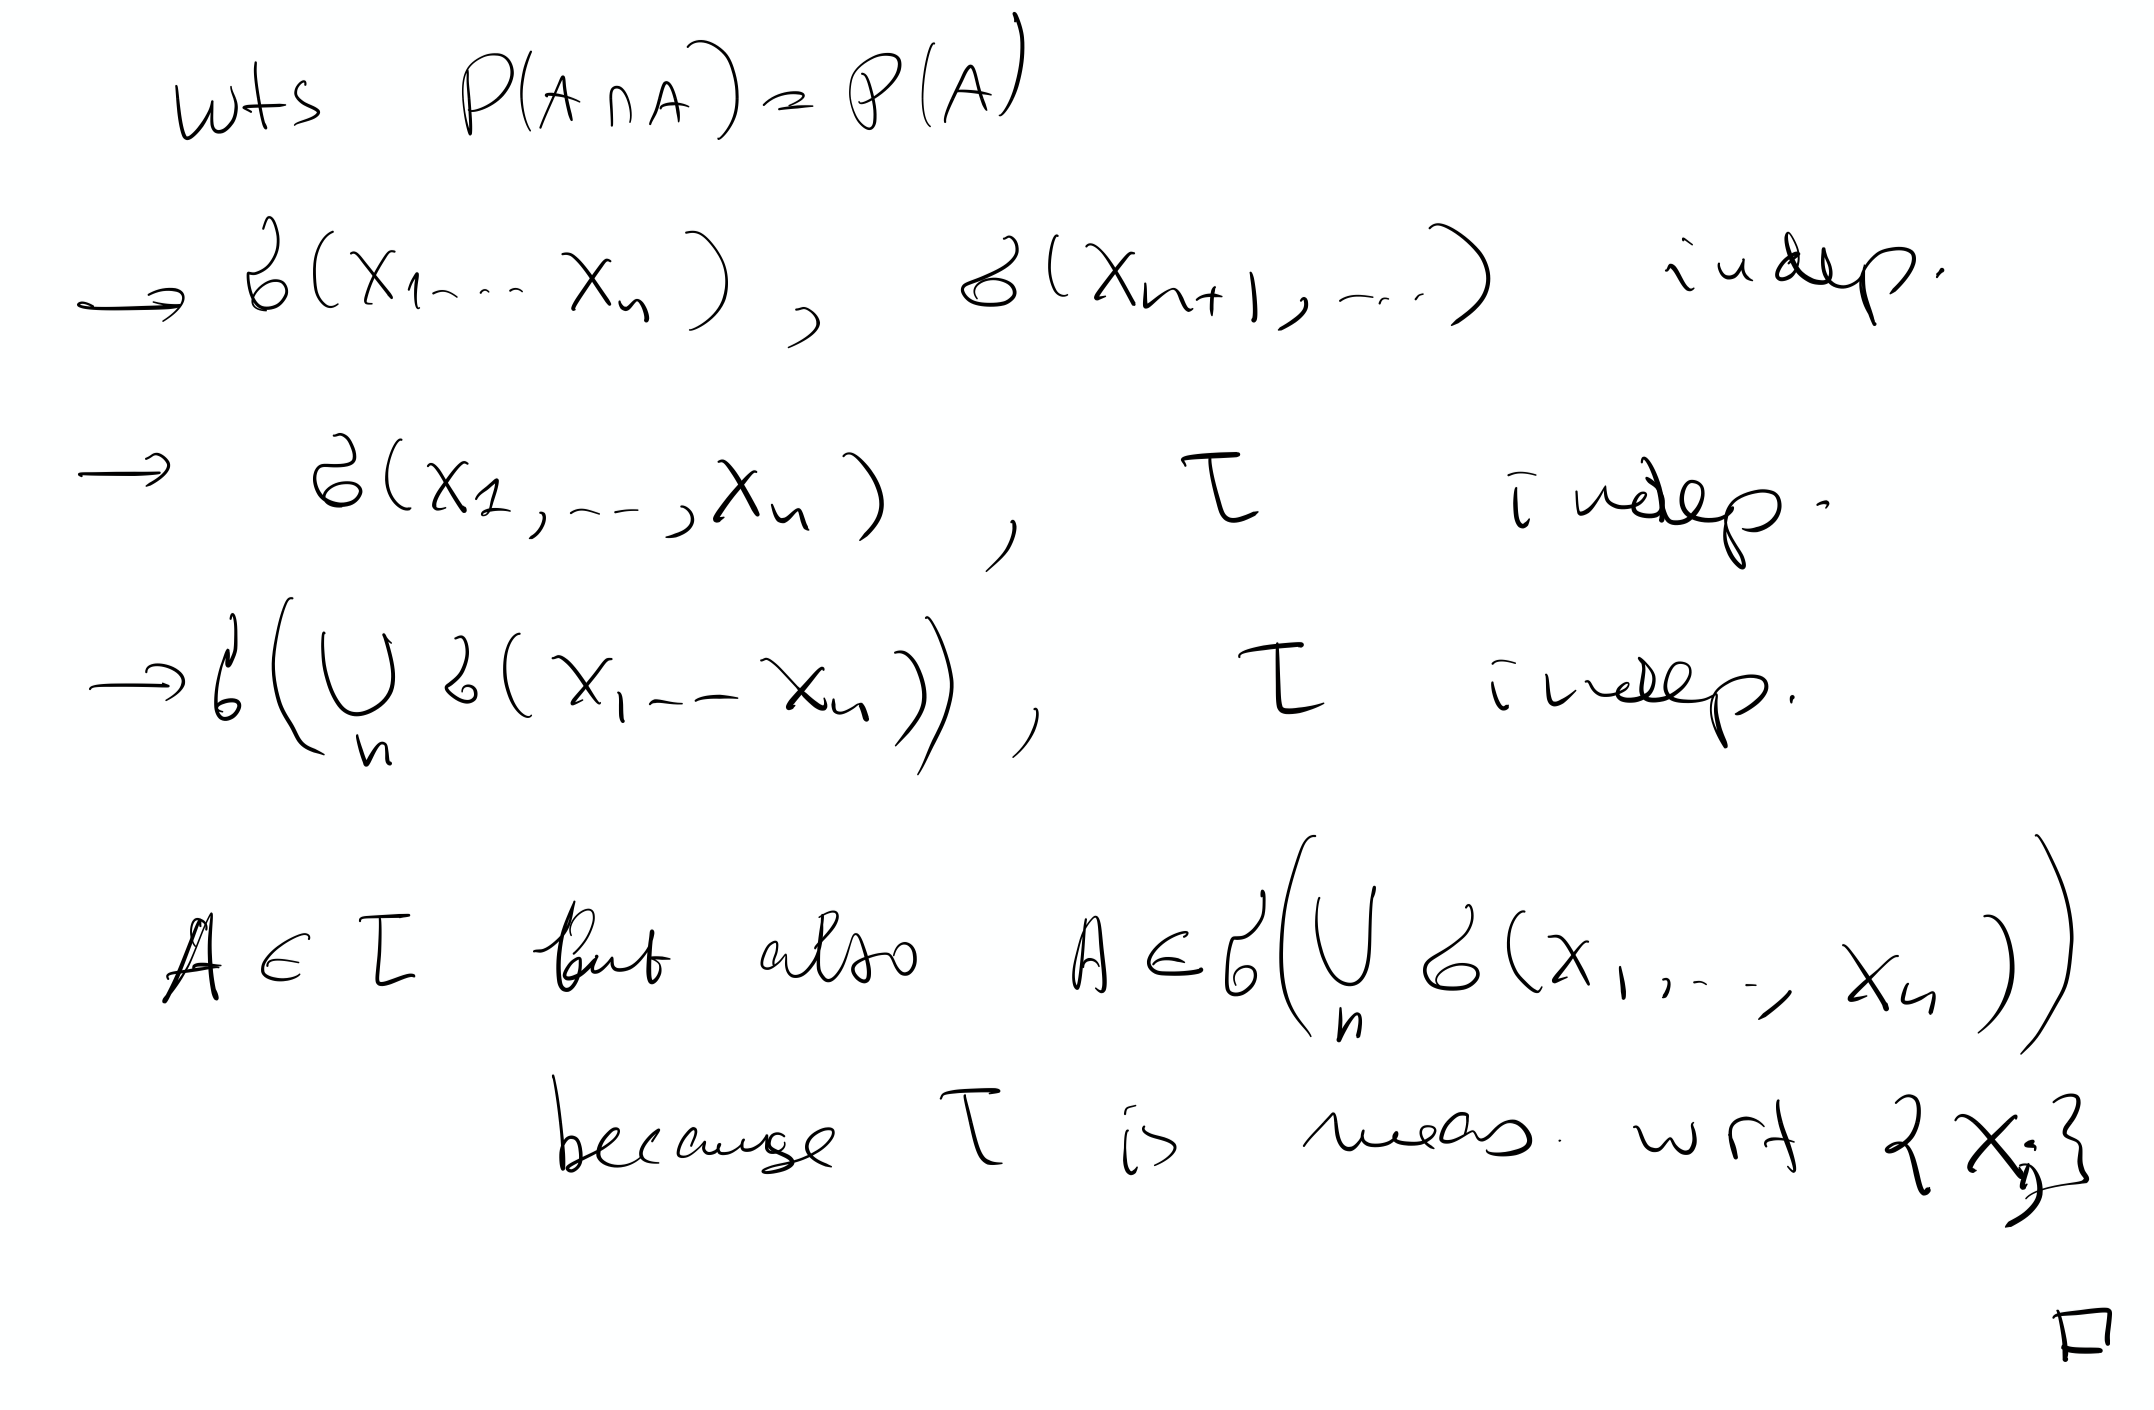 wts P(A∩A) = P(A)
→ σ(X₁... Xₙ), σ(Xₙ₊₁, ...) indep.
→ σ(X₁, ..., Xₙ), τ indep.
→ σ(⋃ₙ σ(X₁ ... Xₙ)), τ indep.
A ∈ τ but also A ∈ σ(⋃ₙ σ(X₁, ..., Xₙ))
because τ is meas. wrt {Xⱼ}
□